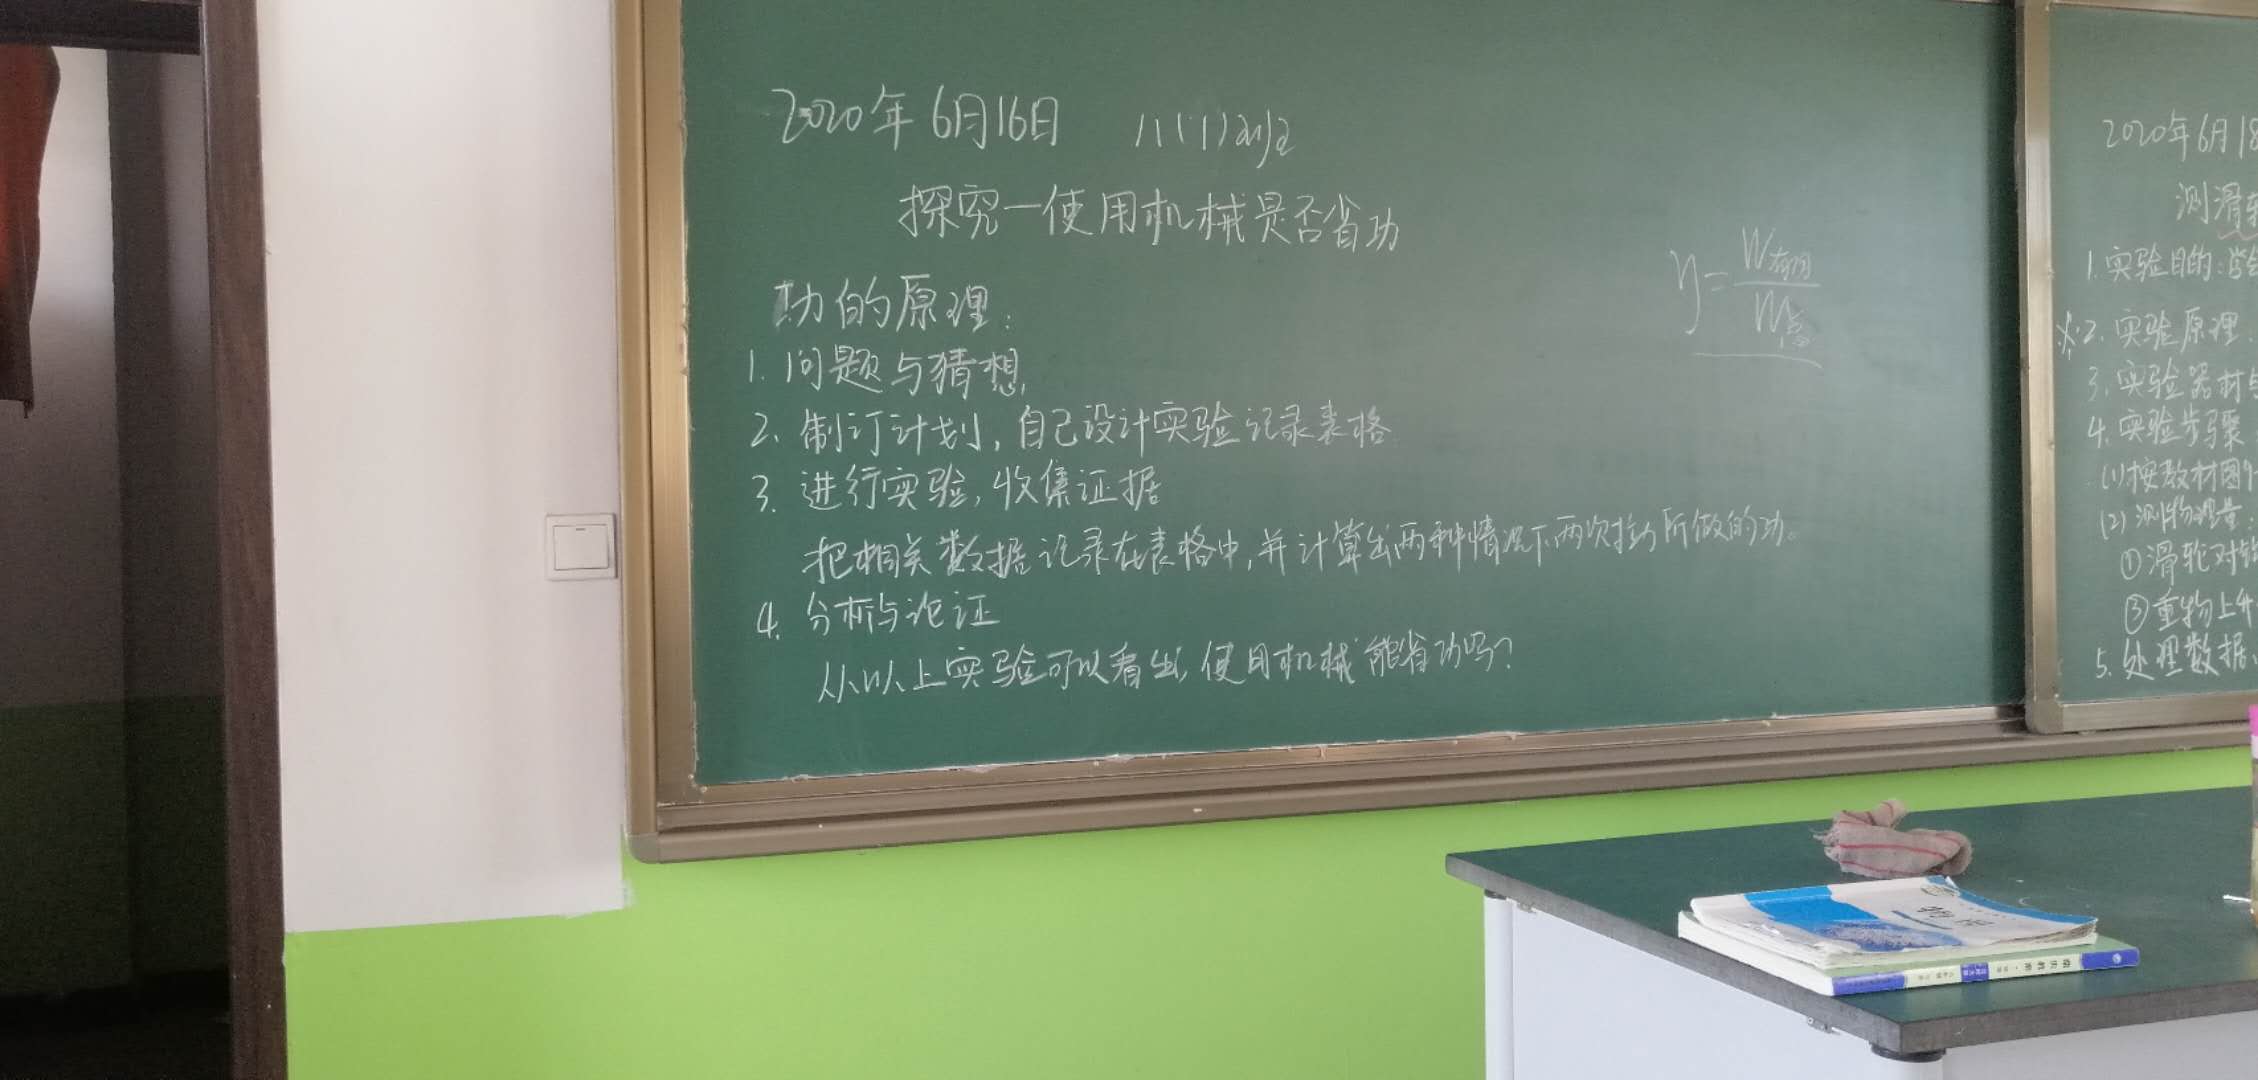 2020年6月16日 八(1)班
探究一使用机械是否省功
功的原理:
1. 问题与猜想
2. 制订计划,自己设计实验记录表格
3. 进行实验,收集证据
把相关数据记录在表格中,并计算出两种情况下两次拉力所做的功。
4. 分析与论证
从以上实验可以看出,使用机械能省功吗?
η=W有用/W总
2020年6月18
测滑
1. 实验目的:
※2. 实验原理
3. 实验器材
4. 实验步骤
(1)按教材图
(2) 测物理量:
①滑轮对
③重物上升
5. 处理数据
物理